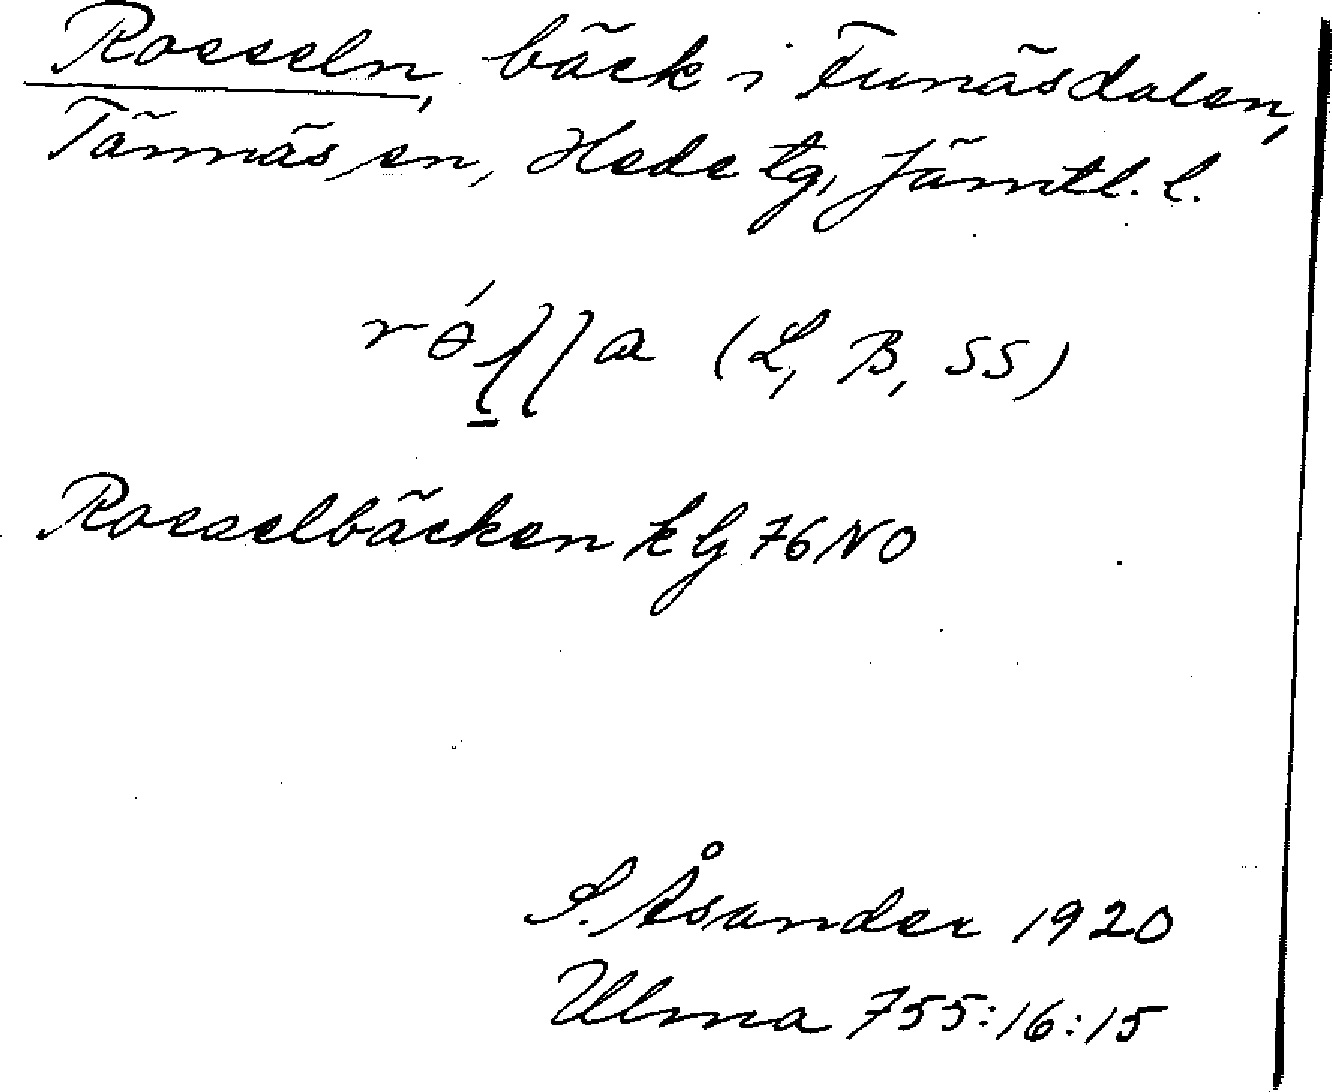 Rosseln, bäck i Funäsdalen,
Tännäs sn, Hede tg, Jämtl. l.
(L, B, SS)
Rosselbäcken k G 76 NO
S. Åsander 1920
Ulma 755:16:15